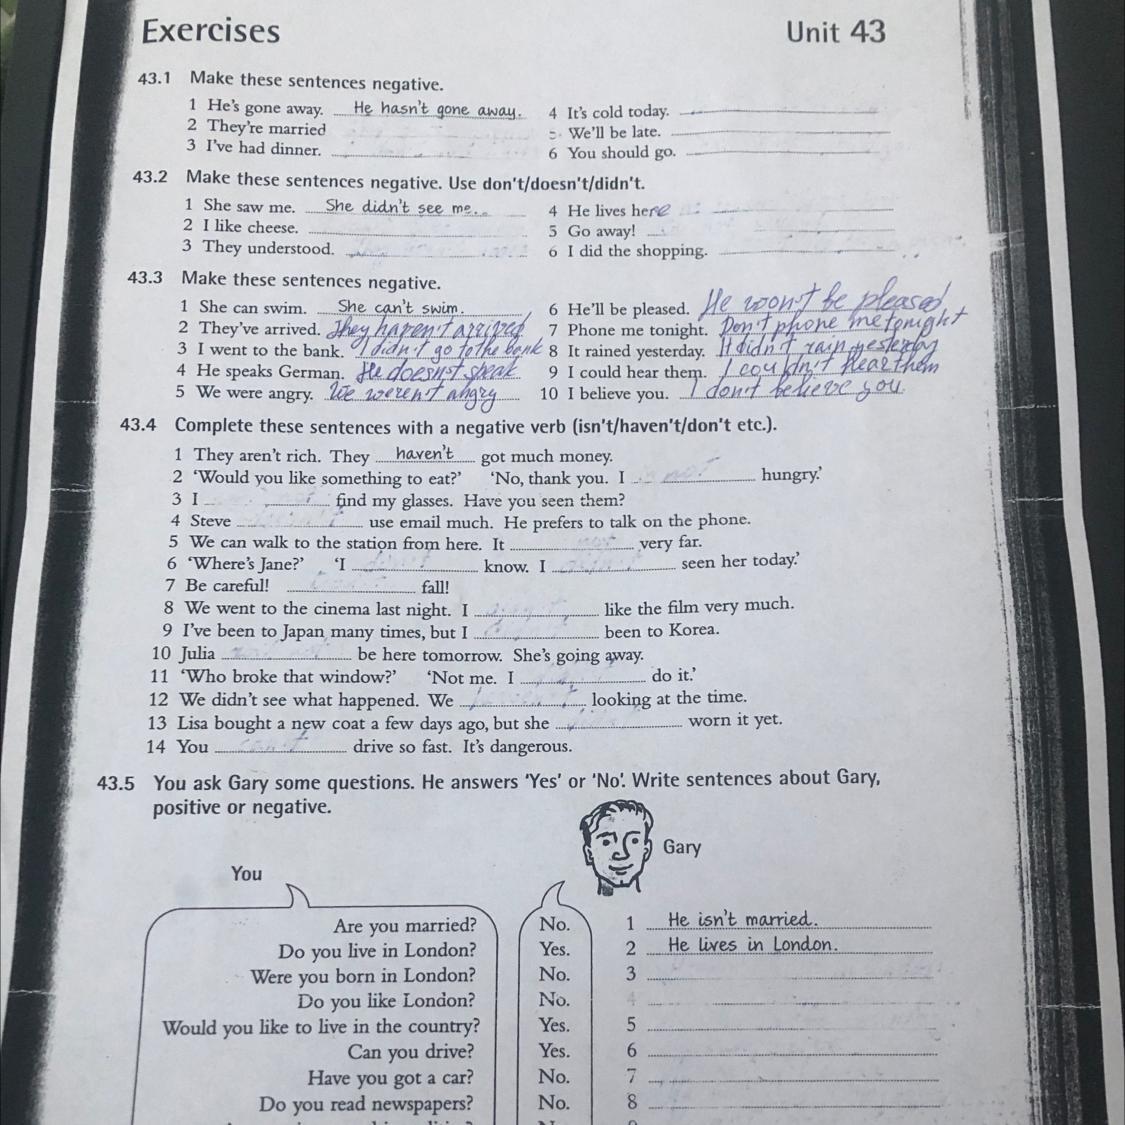 Exercises Unit 43
43.1 Make these sentences negative.
1 He's gone away. He hasn't gone away. 4 It's cold today.
2 They're married We'll be late.
3 I've had dinner. 6 You should go.
43.2 Make these sentences negative. Use don't/doesn't/didn't.
1 She saw me. She didn't see me. 4 He lives here
2 I like cheese. 5 Go away!
3 They understood. 6 I did the shopping.
43.3 Make these sentences negative.
1 She can swim. She can't swim. 6 He'll be pleased. He won't be pleased
2 They've arrived. They haven't arrived 7 Phone me tonight. Don't phone me tonight
3 I went to the bank. I didn't go to the bank 8 It rained yesterday. It didn't rain yesterday
4 He speaks German. He doesn't speak 9 I could hear them. I couldn't hear them
5 We were angry. We weren't angry 10 I believe you. I don't believe you
43.4 Complete these sentences with a negative verb (isn't/haven't/don't etc.).
1 They aren't rich. They haven't got much money.
2 'Would you like something to eat?' 'No, thank you. I hungry.'
3 I find my glasses. Have you seen them?
4 Steve use email much. He prefers to talk on the phone.
5 We can walk to the station from here. It very far.
6 'Where's Jane?' 'I know. I seen her today.'
7 Be careful! fall!
8 We went to the cinema last night. I like the film very much.
9 I've been to Japan many times, but I been to Korea.
10 Julia be here tomorrow. She's going away.
11 'Who broke that window?' 'Not me. I do it.'
12 We didn't see what happened. We looking at the time.
13 Lisa bought a new coat a few days ago, but she worn it yet.
14 You can't drive so fast. It's dangerous.
43.5 You ask Gary some questions. He answers 'Yes' or 'No'. Write sentences about Gary,
positive or negative.
Gary
You
Are you married? No. 1 He isn't married.
Do you live in London? Yes. 2 He lives in London.
Were you born in London? No. 3
Do you like London? No. 4
Would you like to live in the country? Yes. 5
Can you drive? Yes. 6
Have you got a car? No. 7
Do you read newspapers? No. 8